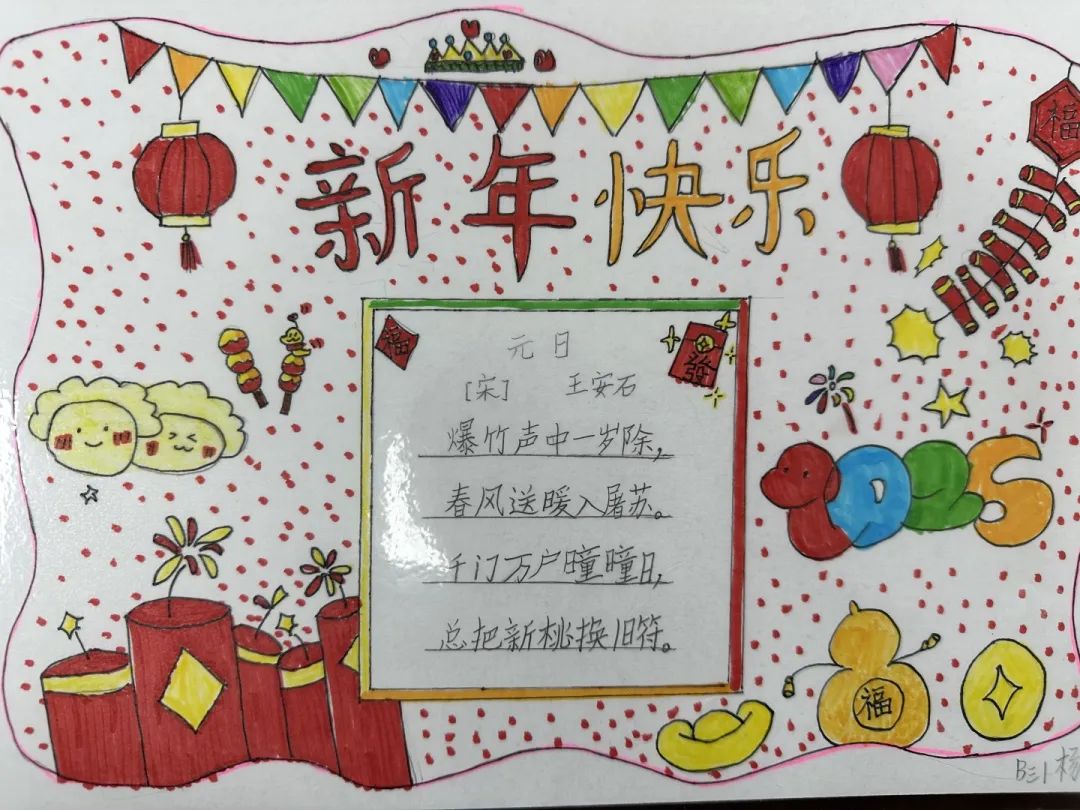 福
新年快乐
福
發
元日
[宋] 王安石
爆竹声中一岁除,
春风送暖入屠苏。
千门万户曈曈日,
总把新桃换旧符。
2025
福